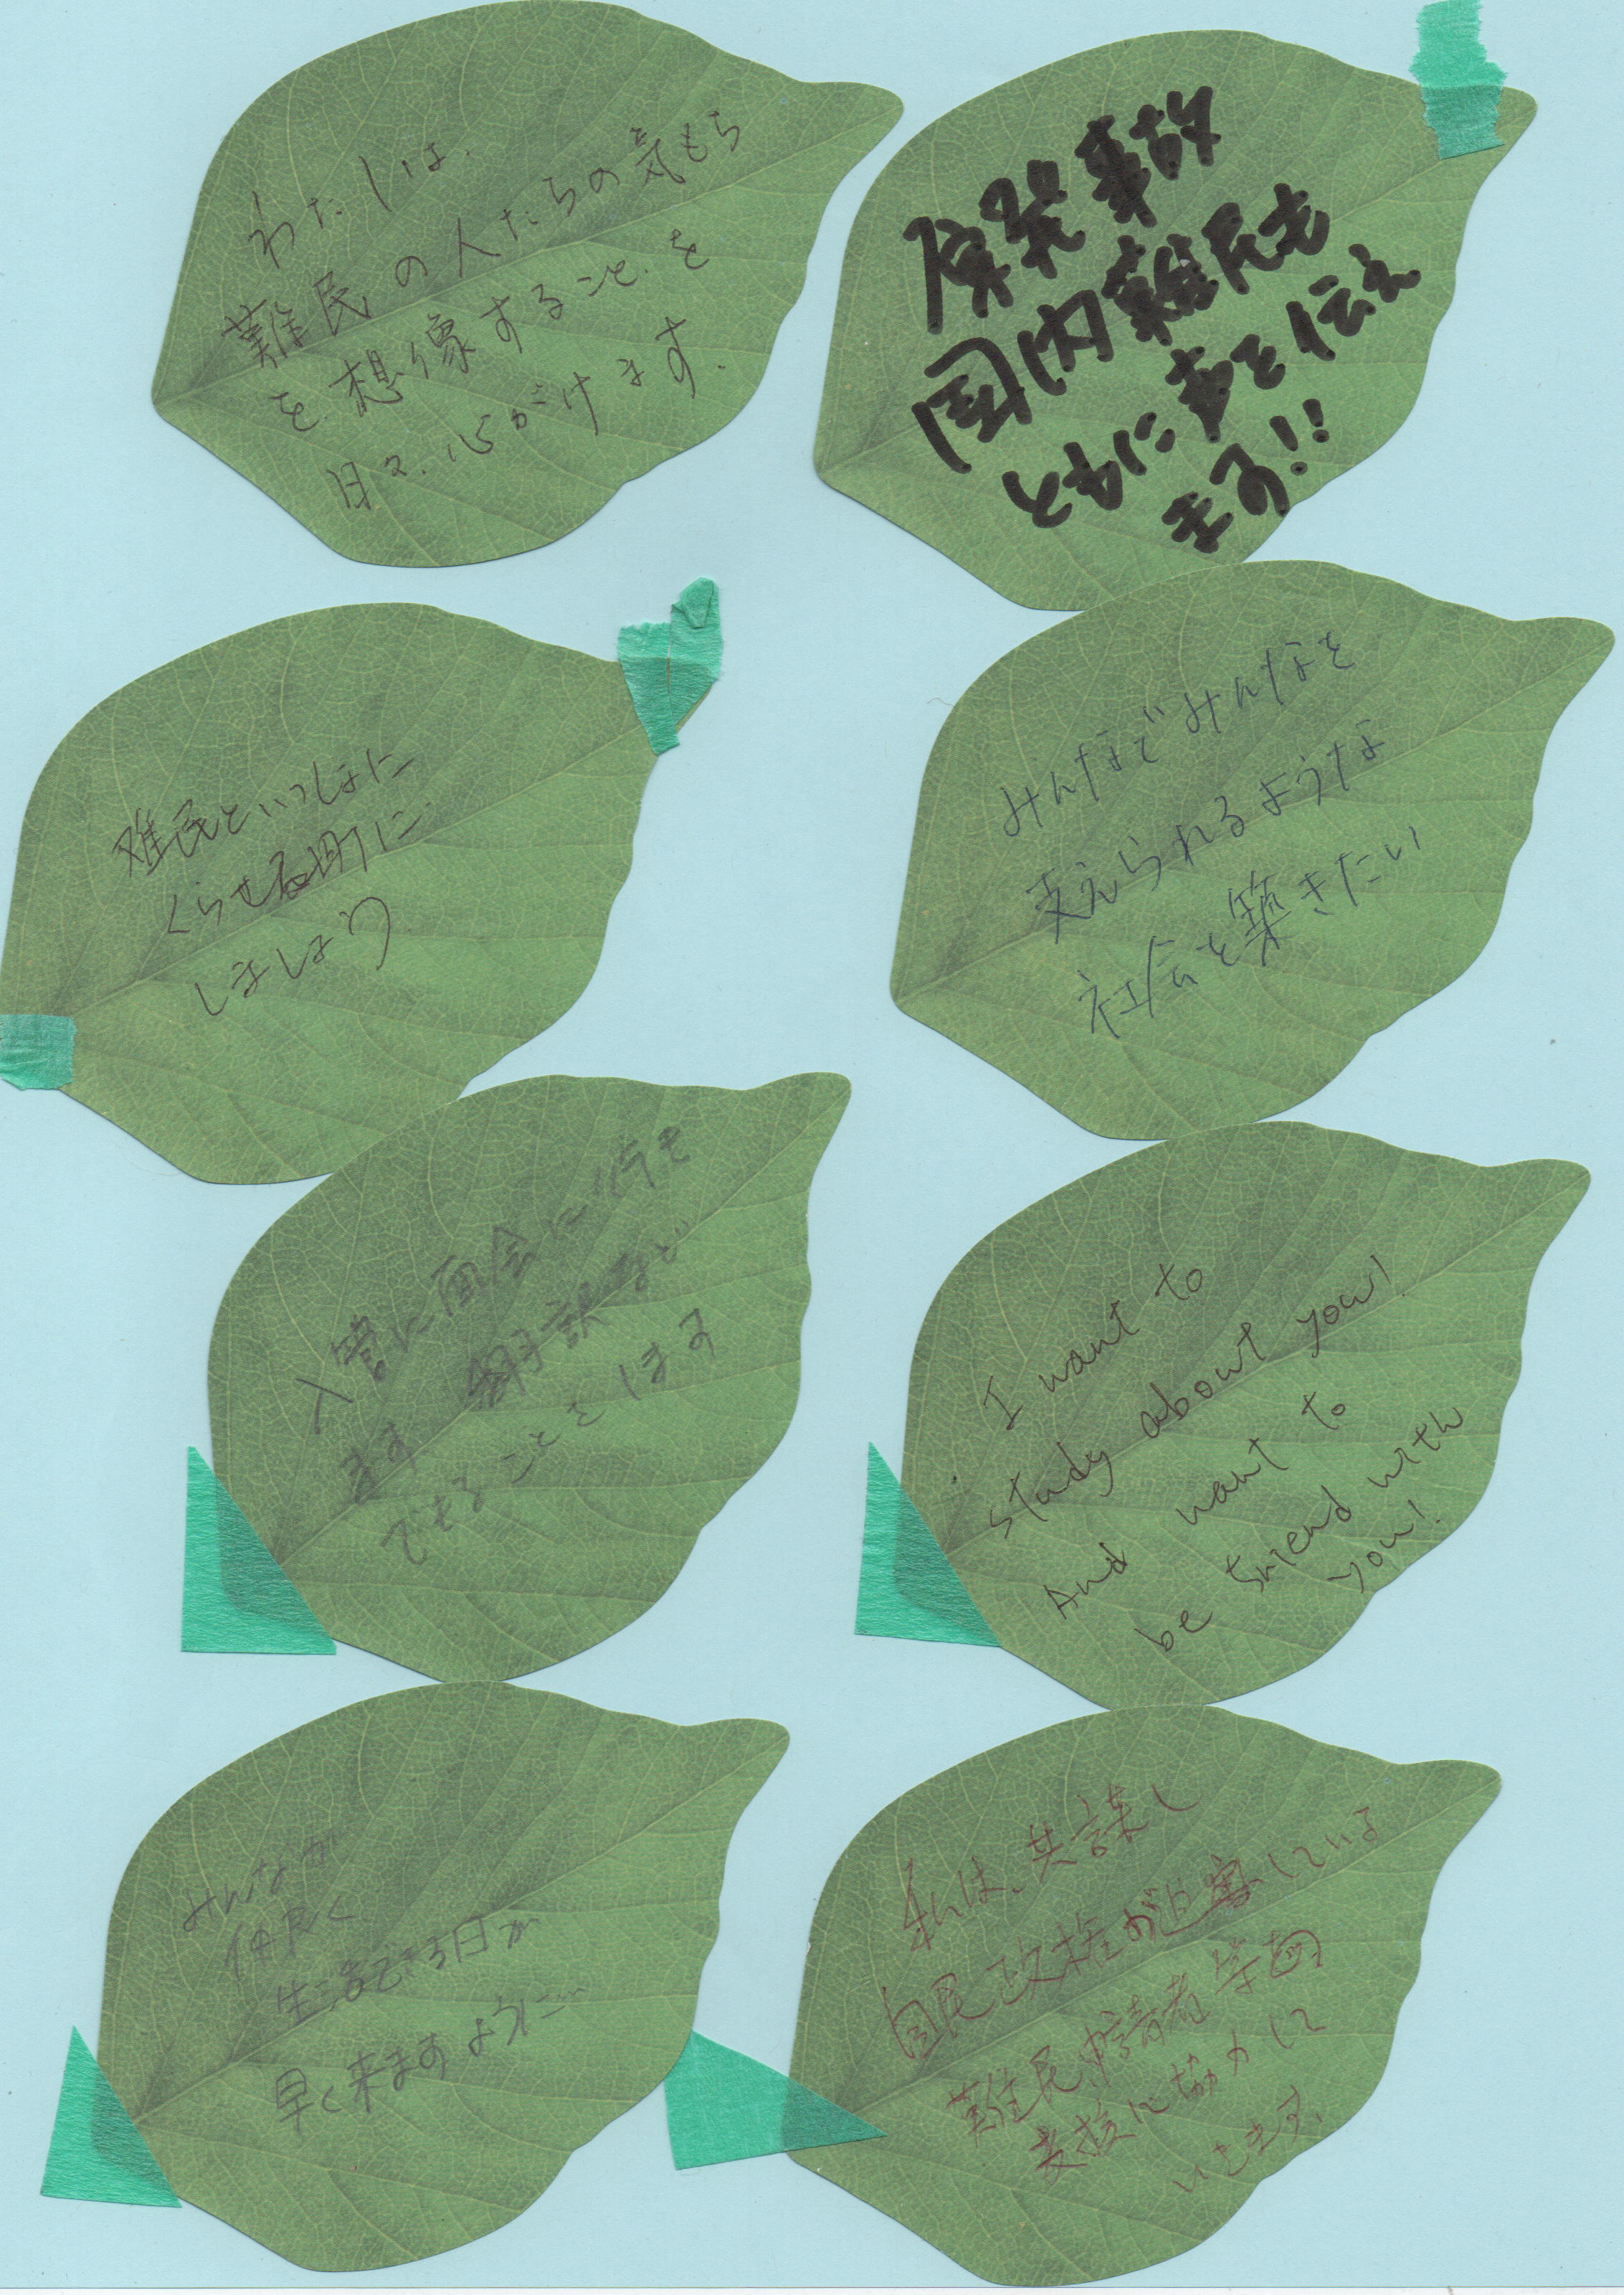 わたしは、
難民の人たちの気もち
を想像することを
日々、心がけます。
原発事故
国内難民も
ともに声を伝え
ます!!
難民といっしょに
くらせる町に
しましょう
みんなでみんなを
支えられるような
社会を築きたい
入管に面会に行き
ます 翻訳など
できることをします
I want to
study about you!
And want to
be friend with
you!
みんなが
仲良く
生活できる日が
早く来ますように…
私は、共謀し
自民政権が迫害している
難民申請者等の
支援に協力して
いきます。